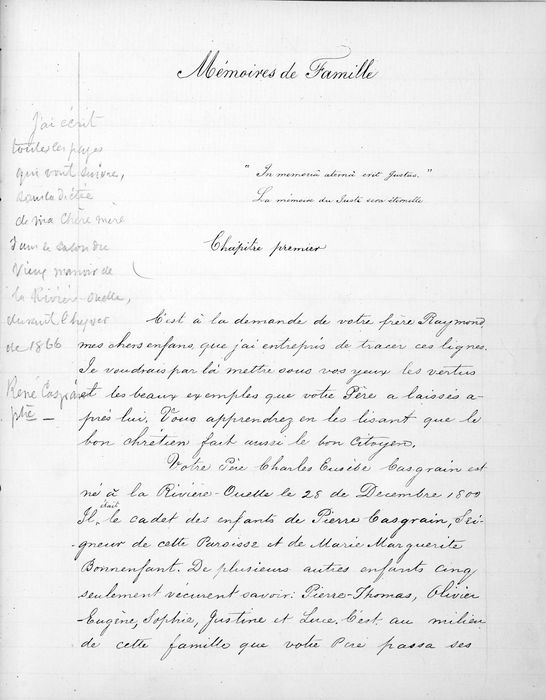 Mémoires de Famille
J'ai écrit
toutes les pages
qui vont suivre,
sous la dictée
de ma chère mère
dans le salon du
vieux manoir de
la Rivière-Ouelle,
durant l'hyver
de 1866
René Casgrain
ptre
" In memoriâ æternâ erit Justus. "
La mémoire du Juste sera éternelle
Chapitre premier
C'est à la demande de votre frère Raymond,
mes chers enfans, que j'ai entrepris de tracer ces lignes.
Je voudrais par là mettre sous vos yeux les vertus
et les beaux exemples que votre Père a laissés a-
près lui. Vous apprendrez en les lisant que le
bon chrétien fait aussi le bon Citoyen.
Votre Père Charles Eusèbe Casgrain est
né à la Rivière-Ouelle le 28 de Décembre 1800
Il était le cadet des enfants de Pierre Casgrain, Sei-
gneur de cette Paroisse et de Marie Marguerite
Bonnenfant. De plusieurs autres enfants cinq
seulement vécurent savoir: Pierre-Thomas, Olivier
Eugène, Sophie, Justine et Luce. C'est au milieu
de cette famille que votre Père passa ses